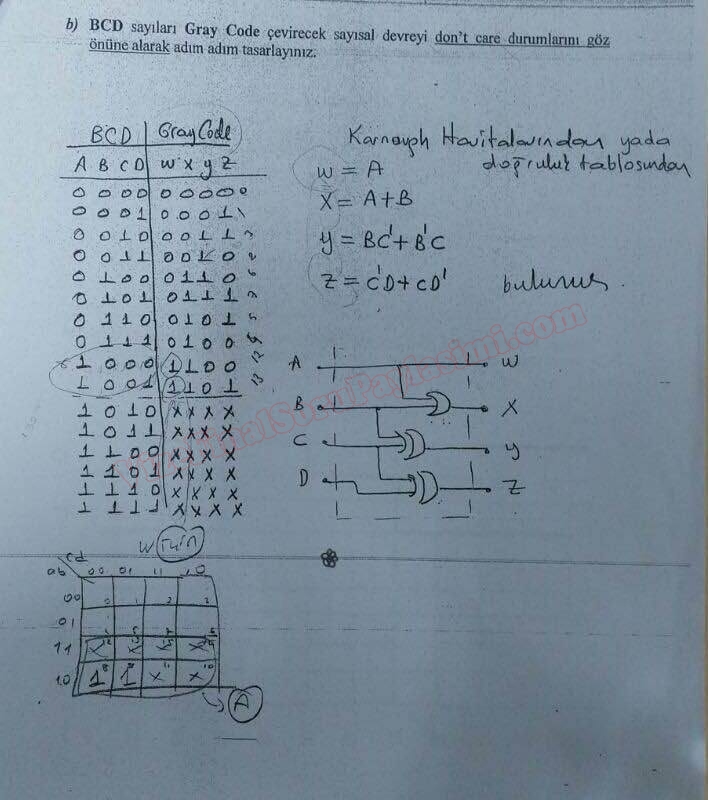 b) BCD sayıları Gray Code çevirecek sayısal devreyi don't care durumlarını göz
önüne alarak adım adım tasarlayınız.
BCD | Gray Code
A B C D | w x y z
0 0 0 0 | 0 0 0 0 0
0 0 0 1 | 0 0 0 1 1
0 0 1 0 | 0 0 1 1 3
0 0 1 1 | 0 0 1 0 2
0 1 0 0 | 0 1 1 0 6
0 1 0 1 | 0 1 1 1 7
0 1 1 0 | 0 1 0 1 5
0 1 1 1 | 0 1 0 0
1 0 0 0 | 1 1 0 0 12
1 0 0 1 | 1 1 0 1 13
1 0 1 0 | x x x x
1 0 1 1 | x x x x
1 1 0 0 | x x x x
1 1 0 1 | x x x x
1 1 1 0 | x x x x
1 1 1 1 | x x x x
Karnaugh Haritalarından yada
doğruluk tablosundan
w = A
X = A+B
y = BC'+B'C
z = C'D+CD' bulunur.
A w
B X
C y
D Z
W için
cd
ab 00 01 11 10
00 0 1 3 2
01
11 x x x x
10 1 8 1 9 x 11 x 10
A
SoruPaylasimi.com